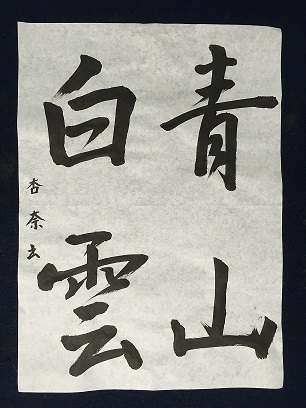 青山
白雲
杏奈玄